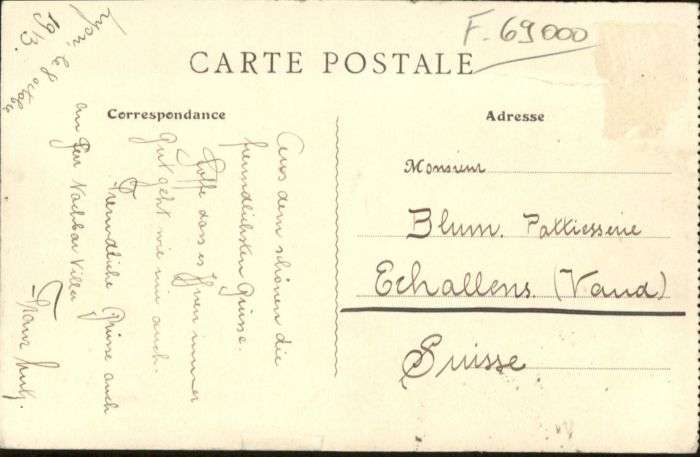 F. 69000
CARTE POSTALE
Correspondance
Adresse
Monsieur
Blum. Pattisserie
Echallens. (Vaud)
Suisse
Lyon, 28 octobre
1913.
Aus dem schönen die
freundlichsten Grüsse.
Hoffe dass es Ihnen immer
gut geht wie mir auch.
Freundliche Grüsse auch
an Herr Nachbar Viller
Franz